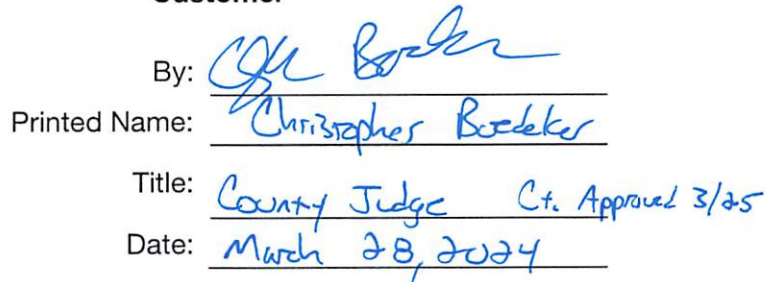 Customer
By:
Printed Name: Christopher Boedeker
Title: County Judge Ct. Approved 3/25
Date: March 28, 2024